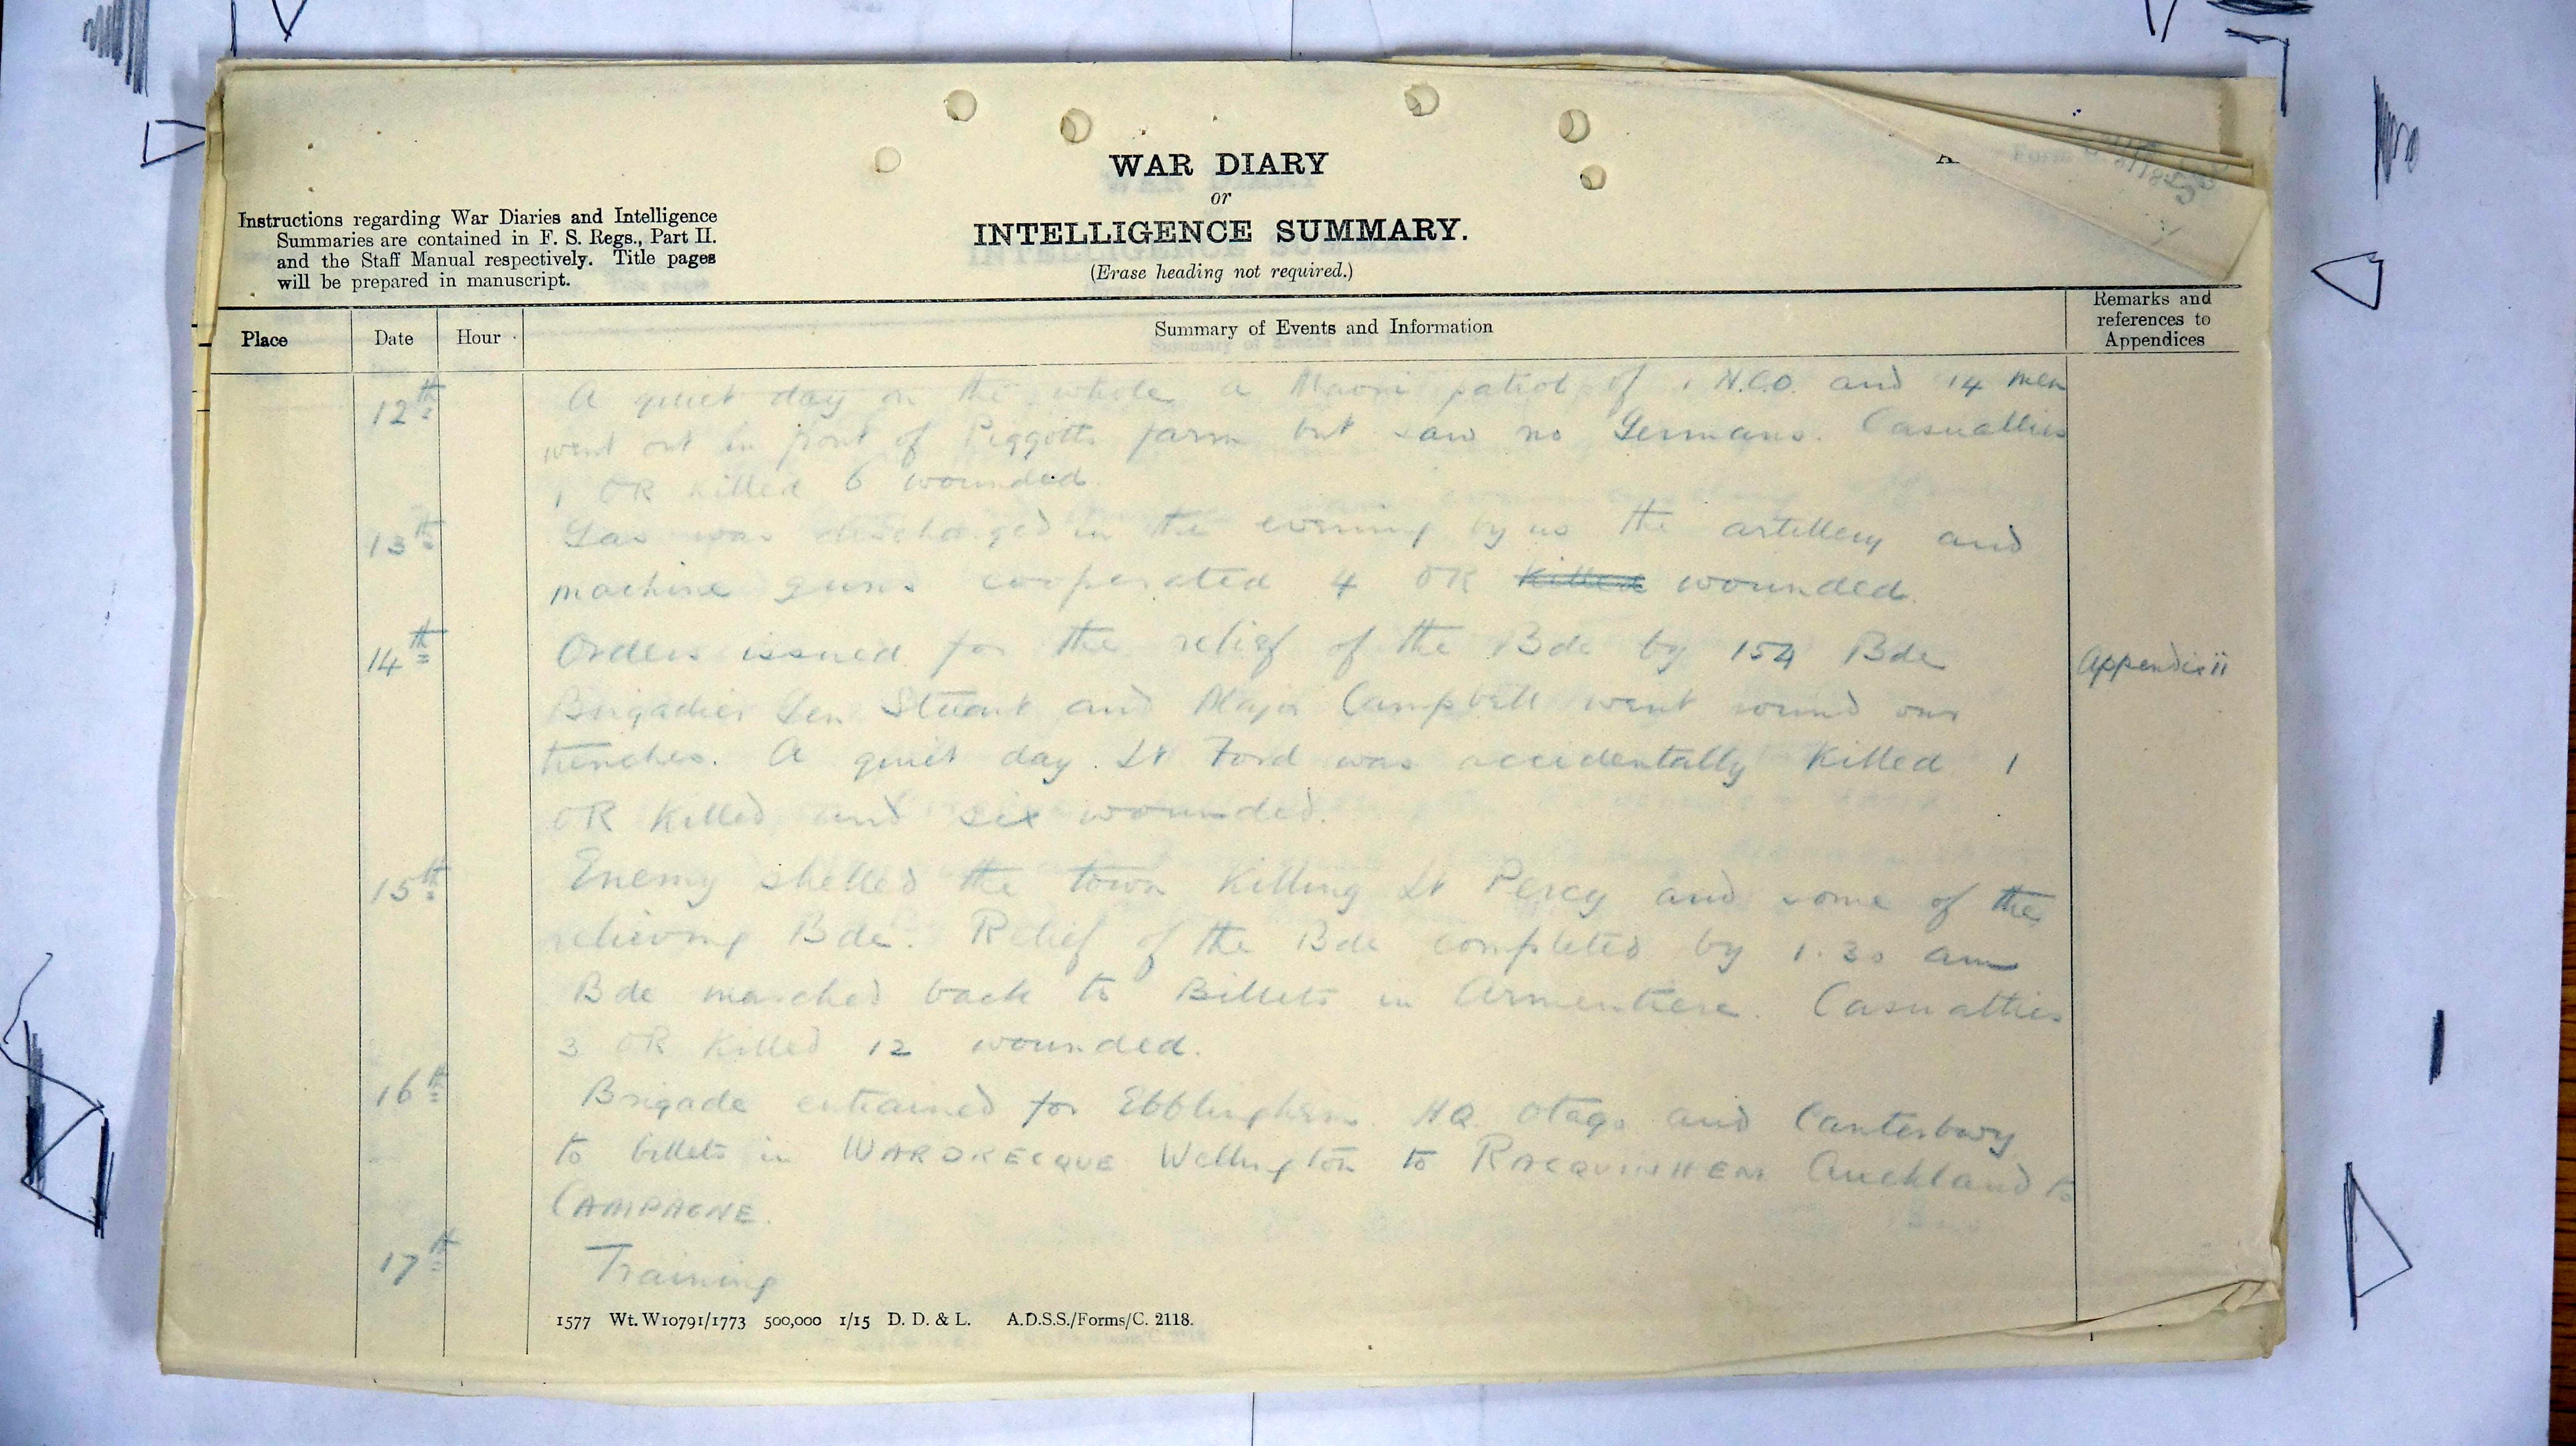 WAR DIARY
or
INTELLIGENCE SUMMARY.
(Erase heading not required.)
Instructions regarding War Diaries and Intelligence
Summaries are contained in F. S. Regs., Part II.
and the Staff Manual respectively. Title pages
will be prepared in manuscript.
Place Date Hour Summary of Events and Information Remarks and references to Appendices
12th A quiet day on the whole a Maori patrol of 1 N.C.O. and 14 men
went out in front of Piggotts farm but saw no Germans. Casualties
1 OR killed 6 wounded.
13th Gas was discharged in the evening by us the artillery and
machine guns cooperated 4 OR killed wounded.
14th Orders issued for the relief of the Bde by 154 Bde Appendix ii
Brigadier Gen Stuart and Major Campbell went round our
trenches. A quiet day. Lt Ford was accidentally killed 1
OR killed and six wounded.
15th Enemy shelled the town killing Lt Percy and some of the
relieving Bde. Relief of the Bde completed by 1.30 am
Bde marched back to Billets in Armentiere. Casualties
3 OR killed 12 wounded.
16th Brigade entrained for Ebblinghem. HQ Otago and Canterbury
to billets in WARDRECQUE Wellington to RACQUINHEM Auckland to
CAMPAGNE.
17th Training
1577 Wt. W10791/1773 500,000 1/15 D. D. & L. A.D.S.S./Forms/C. 2118.